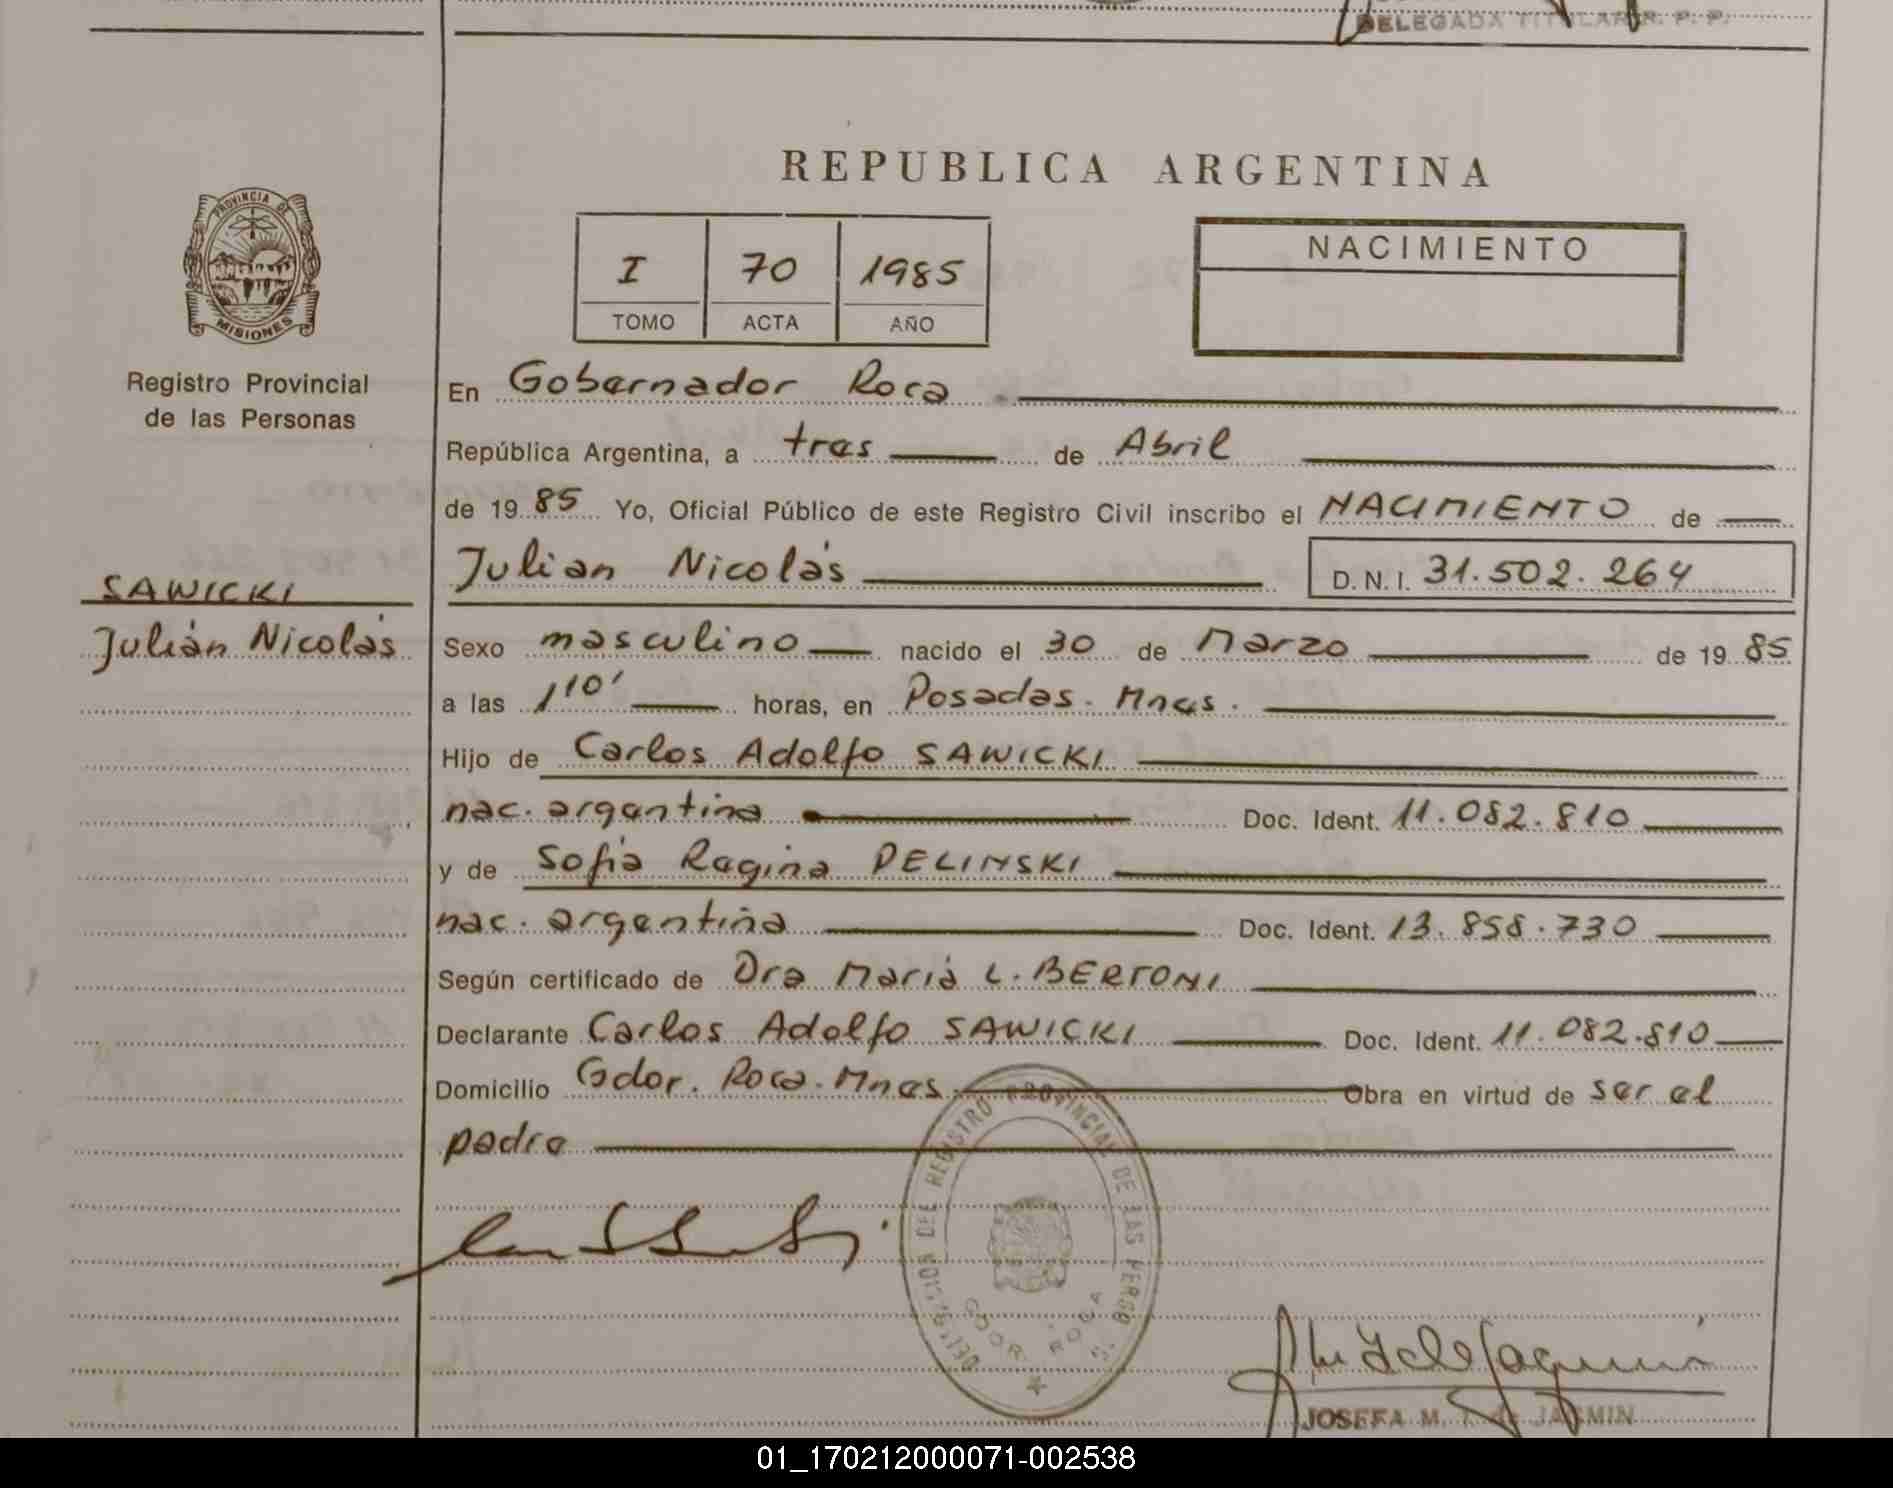 DELEGADA TITULAR R. P. P.
REPUBLICA ARGENTINA
PROVINCIA DE
MISIONES
Registro Provincial
de las Personas
I 70 1985
TOMO ACTA AÑO
NACIMIENTO
En Gobernador Roca
República Argentina, a tres de Abril
de 1985 Yo, Oficial Público de este Registro Civil inscribo el NACIMIENTO de
Julian Nicolás D.N.I. 31.502.264
SAWICKI
Julián Nicolás
Sexo masculino nacido el 30 de Marzo de 1985
a las 1 10' horas, en Posadas. Mnes.
Hijo de Carlos Adolfo SAWICKI
nac. argentina Doc. Ident. 11.082.810
y de Sofia Regina PELINSKI
nac. argentina Doc. Ident. 13.858.730
Según certificado de Dra Maria L. BERTONI
Declarante Carlos Adolfo SAWICKI Doc. Ident. 11.082.810
Domicilio Gdor. Roca. Mnes. Obra en virtud de ser el
padre
DELEGACION DEL REGISTRO PROVINCIAL DE LAS PERSONAS
GDOR. ROCA
JOSEFA M. de JASMIN
01_170212000071-002538